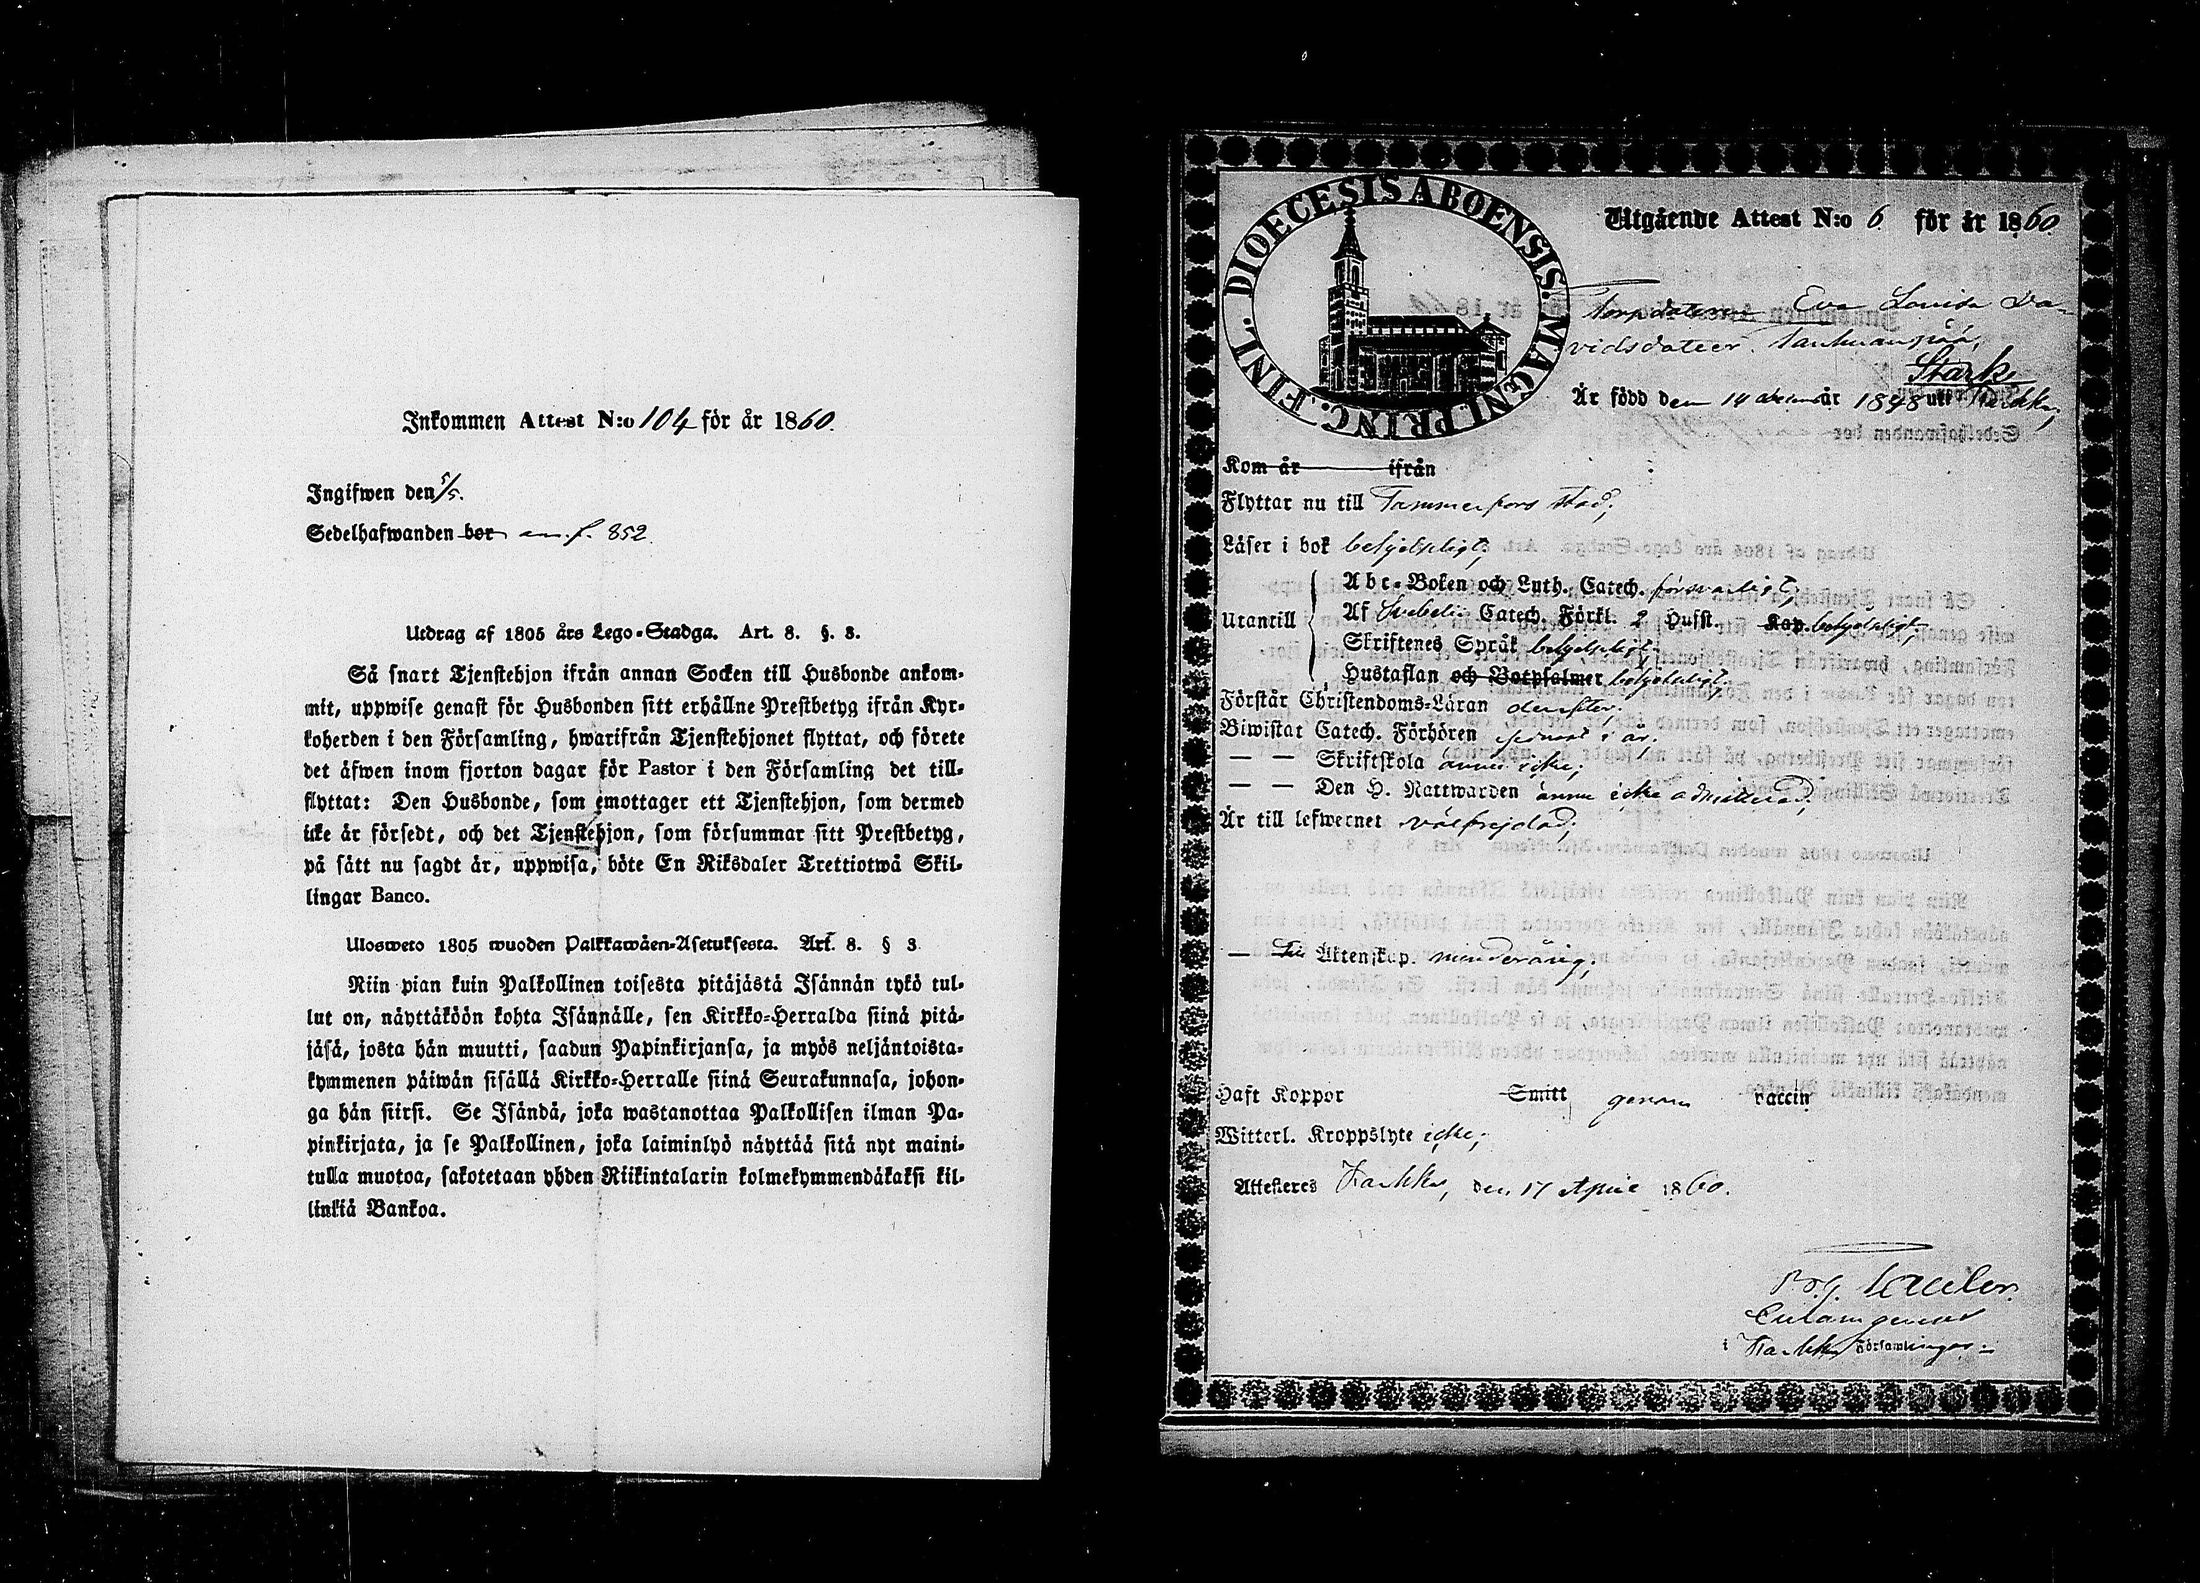 Inkommen Attest N:o 104 för år 1860.
Ingifwen den 5/5.
Sedelhafwanden bor an. f. 852.
Utdrag af 1805 års Lego-Stadga. Art. 8. §. 3.
Så snart Tjenstehjon ifrån annan Socken till Husbonde ankom-
mit, uppwise genast för Husbonden sitt erhållne Prestbetyg ifrån Kyr-
koherden i den Församling, hwarifrån Tjenstehjonet flyttat, och förete
det äfwen inom fjorton dagar för Pastor i den Församling det till-
flyttat: Den Husbonde, som emottager ett Tjenstehjon, som dermed
icke är försedt, och det Tjenstehjon, som försummar sitt Prestbetyg,
på sätt nu sagdt är, uppwisa, böte En Riksdaler Trettiotwå Skil-
lingar Banco.
Ulosweto 1805 wuoden Palkkawäen-Asetuksesta. Art. 8. § 3
Niin pian kuin Palkollinen toisesta pitäjästä Isännän tykö tul-
lut on, näyttäköön kohta Isännälle, sen Kirkko-Herralda siinä pitä-
jäsä, josta hän muutti, saadun Papinkirjansa, ja myös neljäntoista-
kymmenen päiwän sisällä Kirkko-Herralle siinä Seurakunnasa, johon-
ga hän siirsi. Se Isändä, joka wastanottaa Palkollisen ilman Pa-
pinkirjata, ja se Palkollinen, joka laiminlyö näyttää sitä nyt maini-
tulla muotoa, sakotetaan yhden Riikintalarin kolmekymmendäkaksi kil-
linkiä Bankoa.
DIOECESIS ABOENSIS. MAGNI. PRINC. FINL.
Utgående Attest N:o 6 för år 1860
Torpdottern Eva Lovisa Da-
vidsdotter
Starke
Är född den 14 år 1848 uti Karkku,
Kom år ifrån
Flyttar nu till Tammerfors stad,
Läser i bok behjelpligt,
Utantill
Abc-Boken och Luth. Catech. försvarligt,
Af Svebelii Catech. Förkl. 2 Hufst. Kap. behjelpligt,
Skriftenes Språk behjelpligt,
Hustaflan och Botpsalmer behjelpligt,
Förstår Christendoms-Läran derefter,
Biwistat Catech. Förhören senast i år,
— — Skriftskola ännu icke,
— — Den H. Nattwarden ännu icke admitterad,
Är till lefwernet välfrejdad,
— Äktenskap. minderårig,
Haft Koppor Smitt genom vaccin
Witterl. Kroppslyte icke,
Attesteres Karkku, den 17 April 1860.
i Karkku Församlingar